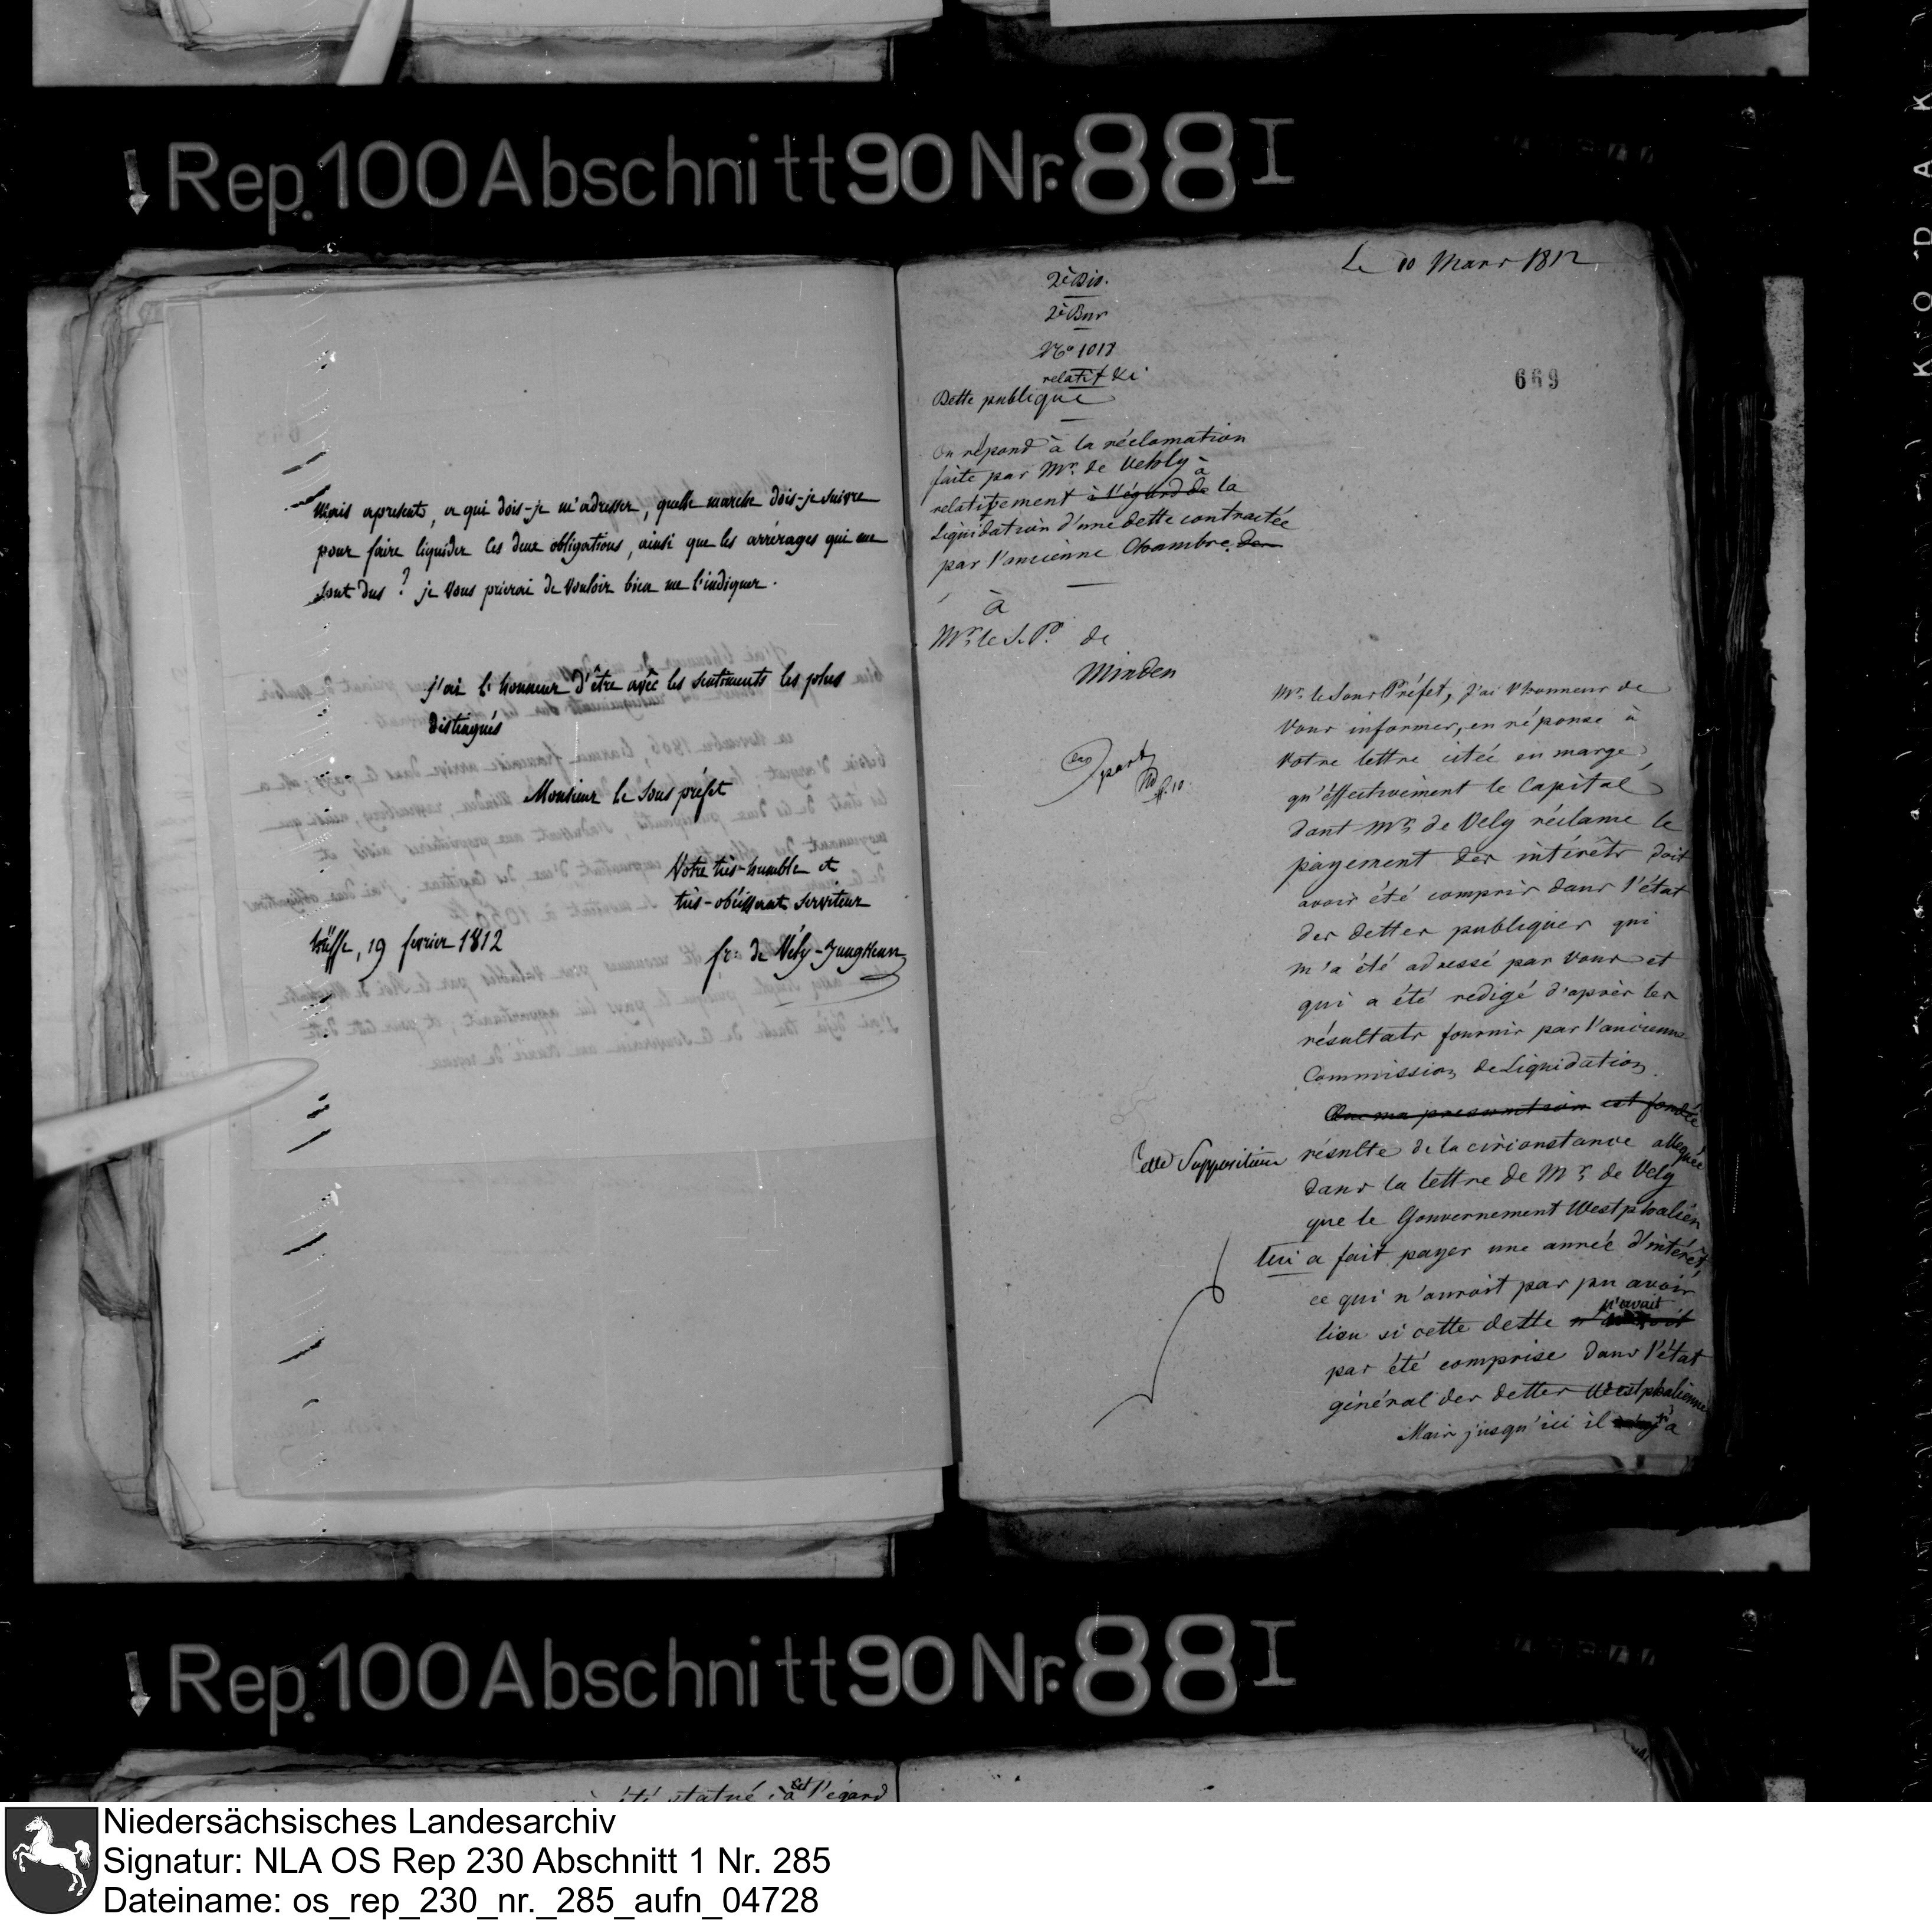 Rep. 100 Abschnitt 90 Nr. 88 I
Mais apresent, a qui dois-je m'adresser, quelle marche dois-je suivre
pour faire liquider ces deux obligations, ainsi que les arrérages qui me
sont dus ? je vous prierai de vouloir bien me l'indiquer.
j'ai l'honneur d'être avec les sentiments les plus
distingués
Monsieur le sous préfet
Votre très-humble et
très-obéissant serviteur
hüffe, 19 fevrier 1812
fr: de Vély-Jungkenn
Le 10 Mars 1812
2e Div.
2e Bur
No 1018
relatif &c
Dette publique
669
On répond à la réclamation
faite par Mr. de Vehly
relativement à l'égard de à la
Liquidation d'une dette contractée
par l'ancienne Chambre de
à
Mr. le S. P. de
Minden
Mr. le Sous Préfet, j'ai l'honneur de
vous informer, en réponse à
votre lettre citée en marge,
qu'éffectivement le Capital
dont Mr. de Vely réclame le
payement des intérêts doit
avoir été compris dans l'état
des dettes publiques qui
m'a été adressé par vous et
qui a été redigé d'après les
résultats fournis par l'ancienne
Commission de Liquidation
Que ma presomtion est fondée
Cette Supposition résulte de la circonstance alleguée
dans la lettre de Mr. de Vely
que le Gouvernement Westphalien
lui a fait payer une année d'intérêt,
ce qui n'auroit pas pu avoir
lieu si cette dette n'avait
pas été comprise dans l'état
général des dettes Westphaliennes
Mais jusqu'ici il n'a
été statué à l'égard
Rep. 100 Abschnitt 90 Nr. 88 I
KODAK
Niedersächsisches Landesarchiv
Signatur: NLA OS Rep 230 Abschnitt 1 Nr. 285
Dateiname: os_rep_230_nr._285_aufn_04728